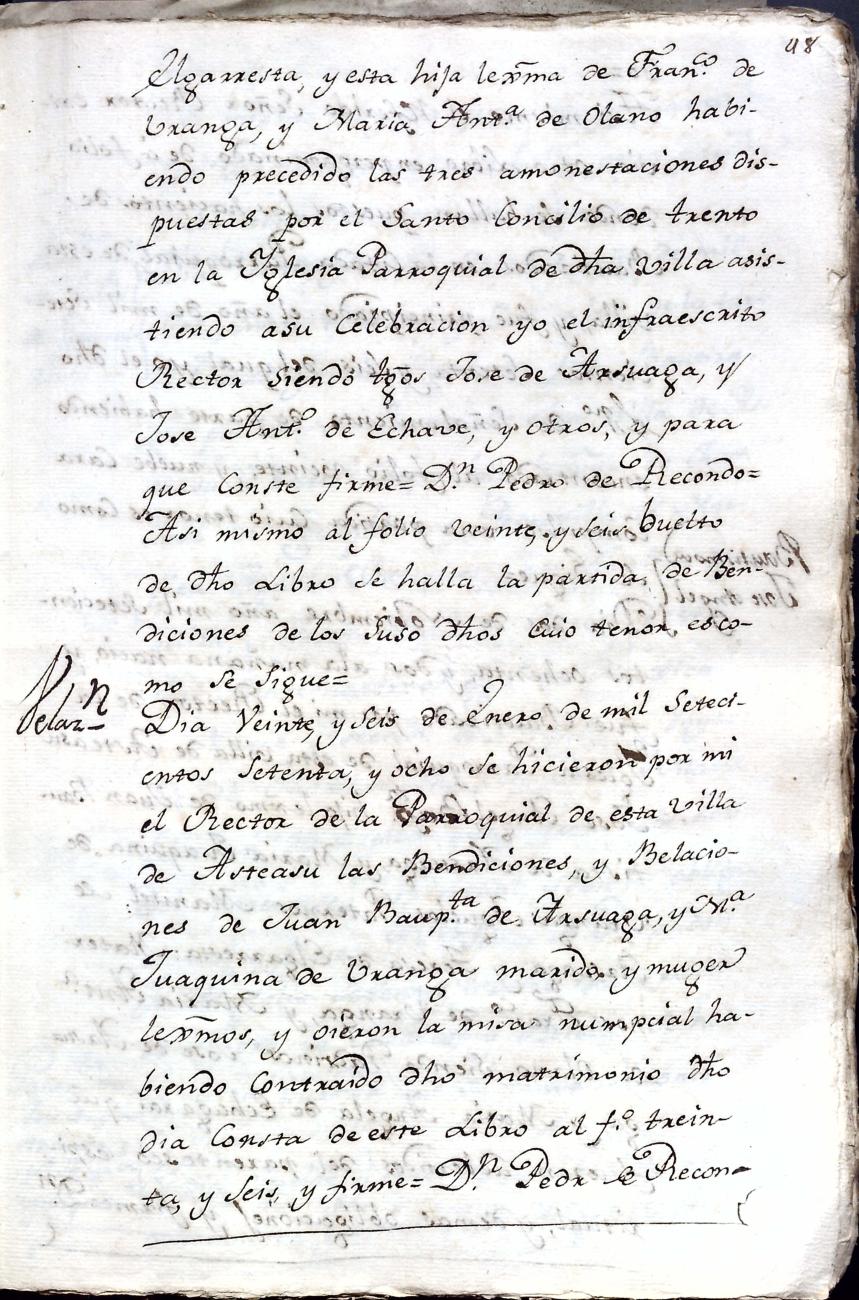 48
Elgarresta, y esta hija lexm̃a de Fran.co de
Vranga, y Maria Ant.a de Olano habi-
endo precedido las tres amonestaciones dis-
puestas por el Santo Concilio de trento
en la Iglesia Parroquial de dh̃a villa asis-
tiendo asu Celebracion yo el infraescrito
Rector siendo tg̃os Jose de Arsuaga, y
Jose Ant.o de Echave, y otros, y para
que Conste firme= D.n Pedro de Recondo=
Asi mismo al folio veinte, y seis buelto
de dh̃o Libro se halla la partida de Ben-
diciones de los Suso dh̃os Cuio tenor es co-
mo se sigue=
Velaz.n
Dia Veinte, y seis de Enero de mil Seteci-
entos Setenta, y ocho se hicieron por mi
el Rector de la Parroquial de esta villa
de Asteasu las Bendiciones, y Belacio-
nes de Juan Baup.ta de Arsuaga, y M.a
Juaquina de Vranga marido y muger
lexm̃os, y oieron la misa numpcial ha-
biendo Contraido dho matrimonio dh̃o
dia Consta de este Libro al f.o trein-
ta, y seis, y firme= D.n Pedr de Recon-